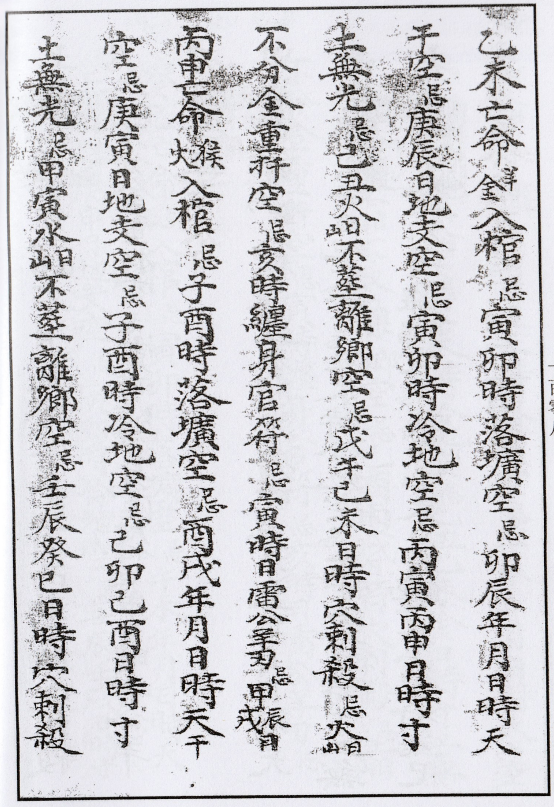 乙未亡命羊金入棺忌寅卯時落壙空忌卯辰年月日時天
干空忌庚辰日地支空忌寅卯時冷地空忌丙寅丙申日時寸
土無光忌己丑火山日不莖離鄉空忌戊午己未日時穴刺殺忌火山日
不分金重犴空忌亥時纏身官符忌寅時日雷公羊刃忌甲辰戌日
丙申亡命猴火入棺忌子酉時落壙空忌酉戌年月日時天干
空忌庚寅日地支空忌子酉時冷地空忌己卯己酉日時寸
土無光忌甲寅水山日不莖離鄉空忌壬辰癸巳日時穴刺殺